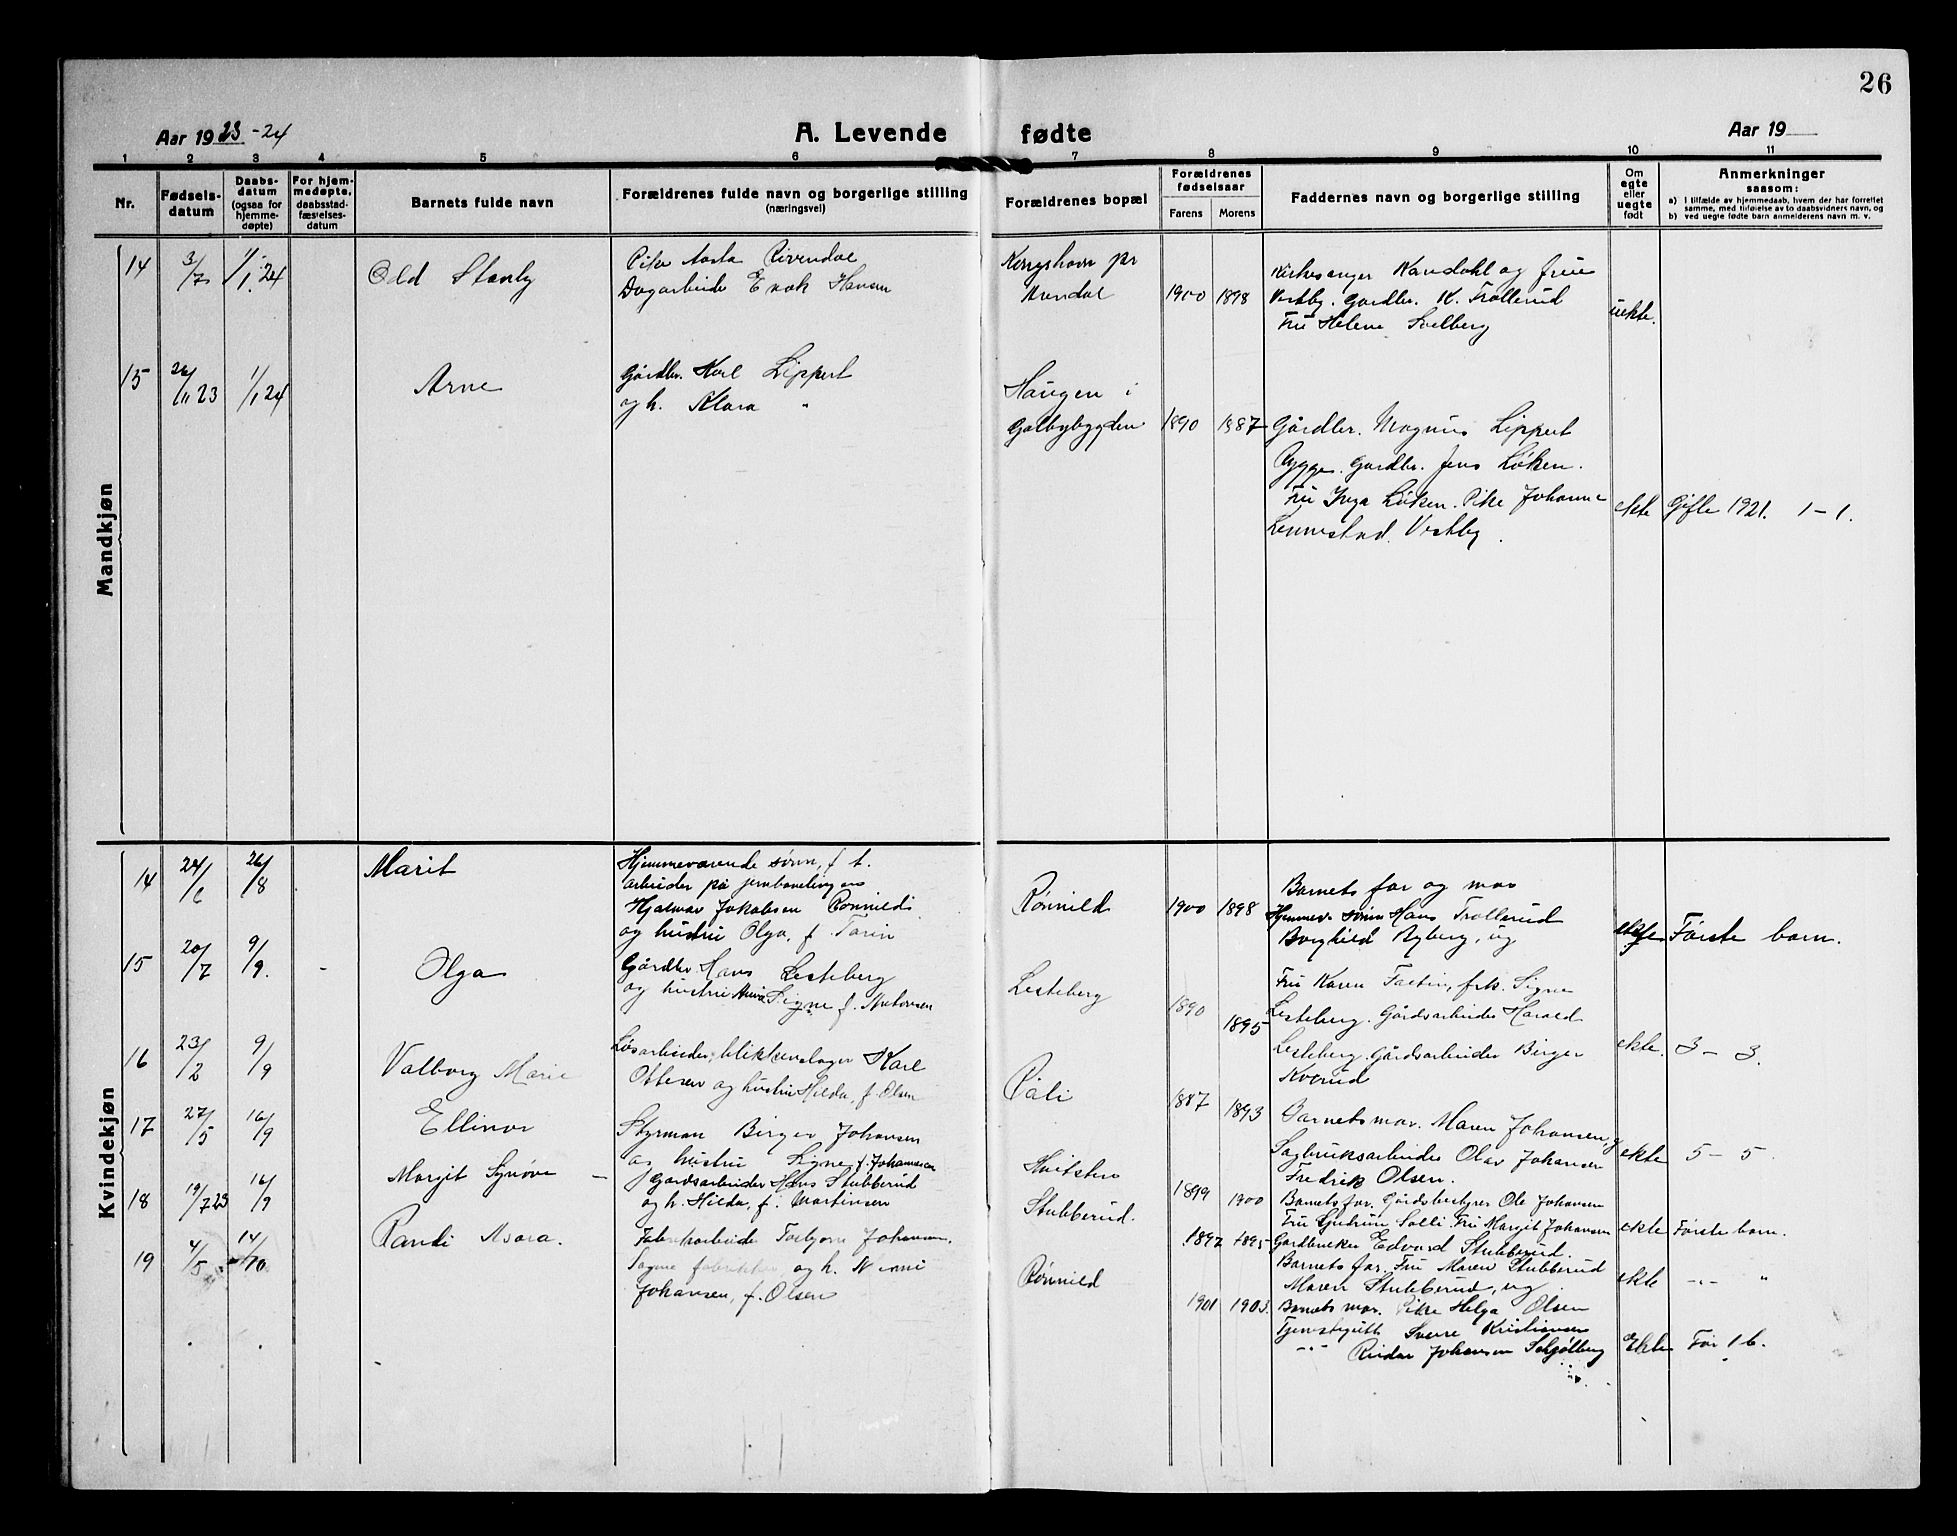 26
Aar 1923-24
A. Levende fødte
Aar 19
1 2 3 4 5 6 7 8 9 10 11
Nr.
Fødsels-
datum
Daabs-
datum
(ogsaa for
hjemme-
døpte)
For hjem-
medøpte,
daabsstad-
fæstelses-
datum
Barnets fulde navn
Forældrenes fulde navn og borgerlige stilling
(næringsvei)
Forældrenes bopæl
Forældrenes
fødselsaar
Farens Morens
Faddernes navn og borgerlige stilling
Om
egte
eller
uegte
født
Anmerkninger
saasom:
a) I tilfælde av hjemmedaab, hvem der har forrettet
samme, med tilføielse av to daabsvidners navn, og
b) ved uegte fødte barn anmelderens navn m. v.
Mandkjøn
14
3/7
1/1.24
Odd Stenby
Pike Aasta
Dagarbeide Enok Hansen
Kongshavn pr
Arendal
1900 1898
Kirkesanger Kandahl og frue
Vestby. Gardbr. K. Trollerud
Fru Helene Solberg
uekte.
15
26/11 23
1/1 24
Arne
Gårdbr. Karl Lippert
og h. Klara "
Haugen i
Galbybygden
1890 1887
Gårdbr. Magnus Lippert
Rygge. Gardbr. Jens Løken.
Fru Inga Løken. Pike Johanne
Lennestad. Vestby.
ekte
Gifte 1921. 1-1.
Kvindekjøn
14
24/6
26/8
Marit
Hjemmeværende sønn, f. t.
arbeider på jernbanelinjen
Hjalmar Jakobsen Rønnild
og hustru Olga, f.
Rønnild
1900 1898
Barnets far og mor
Hjemmev. sønn Hans Trollerud
Borghild Ryberg, ug
ekte
Første barn.
15
20/7
9/9.
-
Olga
Gårdbr. Hans Lesteberg
og hustru Anna Signe f.
Lesteberg
1890
1895
Fru Karen frk. Signe
Lesteberg. Gårdsarbeider Harald
Lesteberg. Gårdsarbeider Birger
Kverud
ekte.
3 - 3.
16
23/2
9/9
Valborg Marie
Løsarbeider, blikkenslager Karl
Ottesen og hustru Hilda, f. Olsen
Påli
1887 1893
Barnets mor. Maren Johansen, g
Sagbruksarbeider Olav Johansen
Fredrik Olsen.
ekte
5 - 5.
17
27/5
16/9
Ellinor
Styrman Birger Johansen
og hustru Signe f. Johannesen
Hvitsten
1899 1900
Barnets far, Gårdsbestyrer Ole Johansen
Fru Gudrun Solli. Fru Margit Johansen
ekte
Første barn.
18
19/7 23
16/9
Margit Synøve -
Gårdsarbeider Hans Stubberud
og h. Hilda, f. Martinsen
Stubberud.
1897 1895
Gardbruker Edvard Stubberud.
Barnets far. Fru Maren Stubberud
Maren Stubberud, ug
ekte
-"- "
19
4/5
14/10
Randi Asora.
Fabrikarbeider Torbjørn Johansen,
og h.
Johansen, f. Olsen
Rønnild
1901 1903.
Barnets mor. Pike Helga Olsen
Tjenstegutt Sverre Kristiansen
-"- Reidar Johansen Schjølberg
Ekte
Før 1 b.